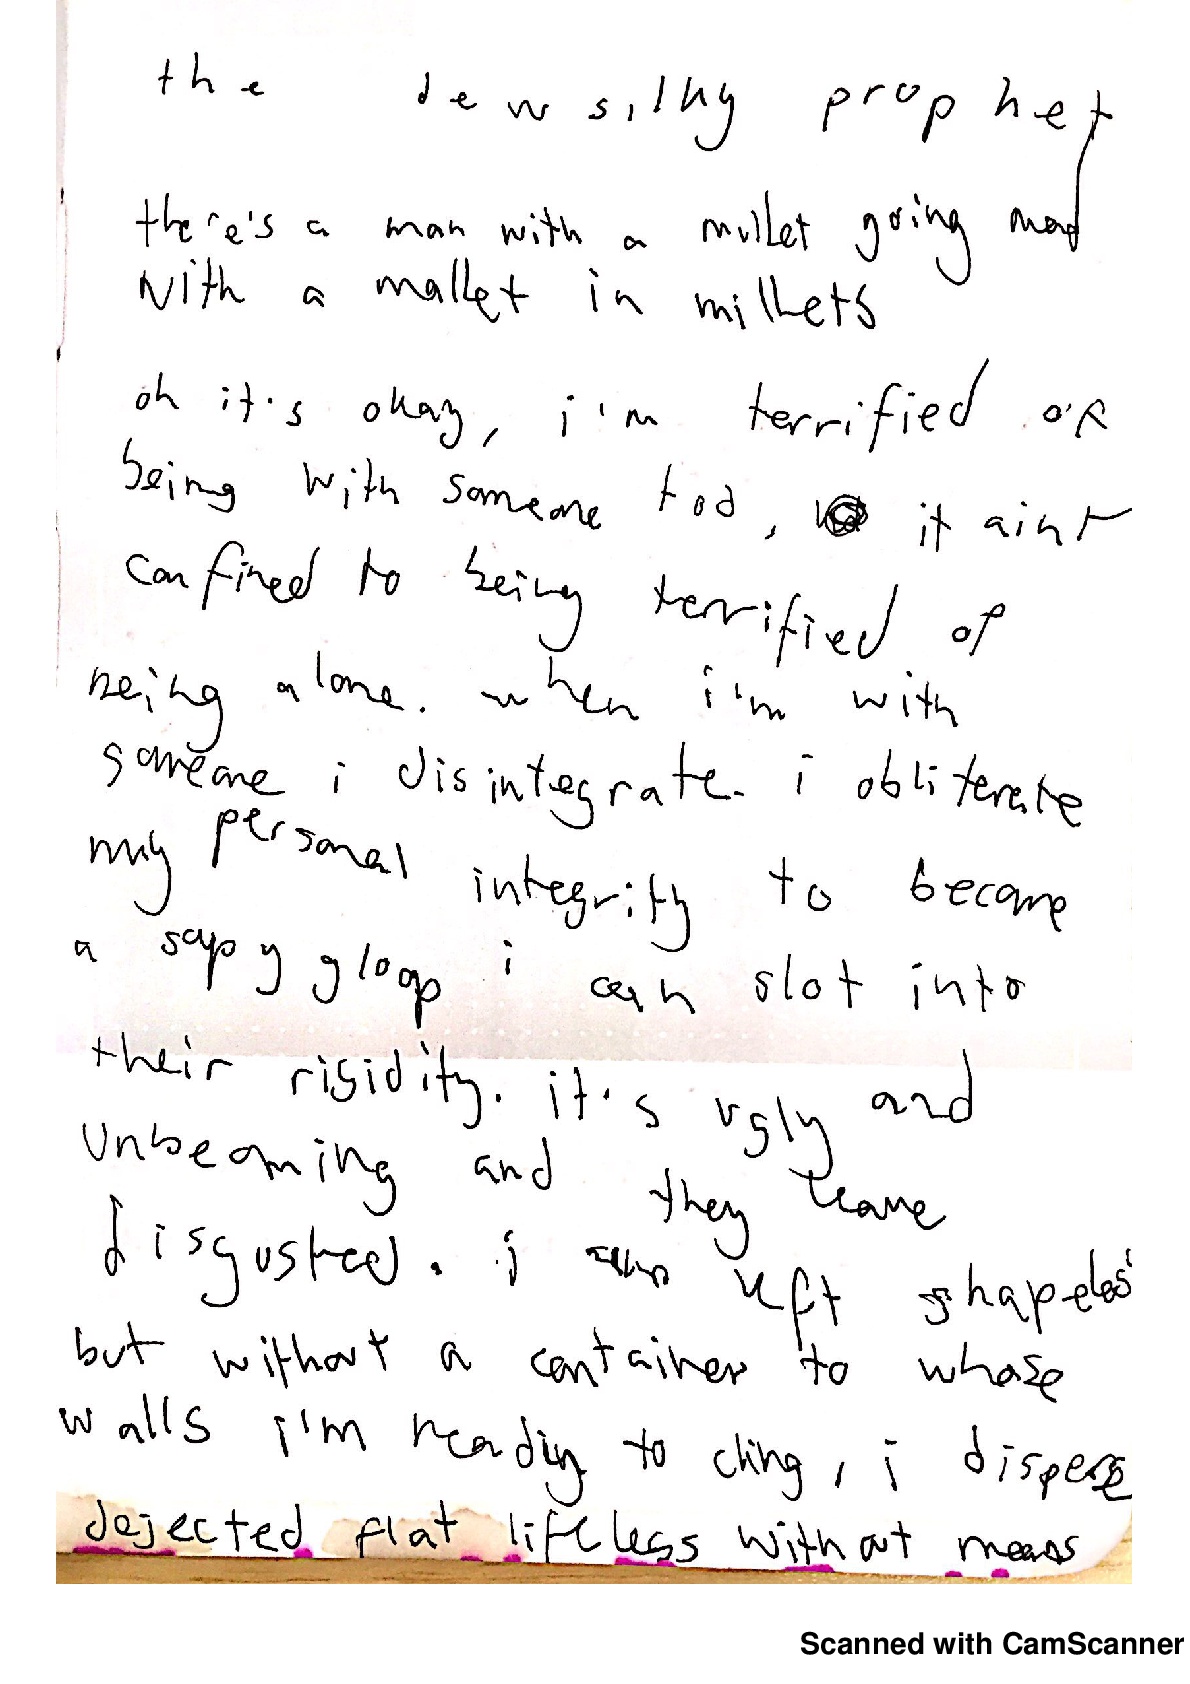 the dewsilky prophet
there's a man with a mullet going mad
with a mallet in millets
oh it's okay, i'm terrified of
being with someone too, it aint
confined to being terrified of
being alone. when i'm with
someone i disintegrate. i obliterate
my personal integrity to become
a sapy gloop i can slot into
their rigidity. it's ugly and
unbecoming and they leave
disgusted. i left shapeless
but without a container to whose
walls i'm ready to cling, i disperse
dejected flat lifeless without means
Scanned with CamScanner